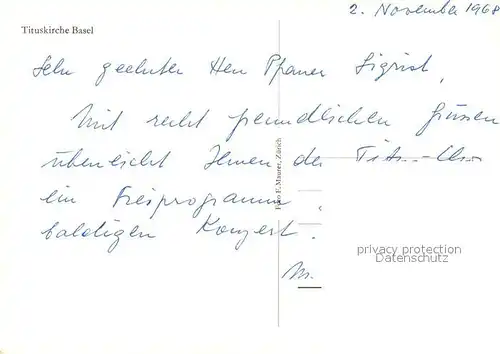 2. November 1968
Tituskirche Basel
Sehr geehrter Herr Pfarrer Sigrist,
Mit recht freundlichen Grüssen
überreicht Ihnen der
ein Freiprogramm
baldigen Konzert.
Foto F. Maurer, Zürich
privacy protection
Datenschutz